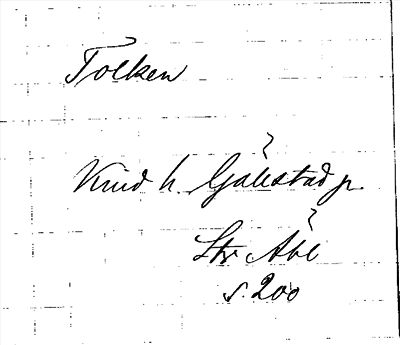 Tolken
Knud h. Gåkstad p.
Str Åbl
s. 200